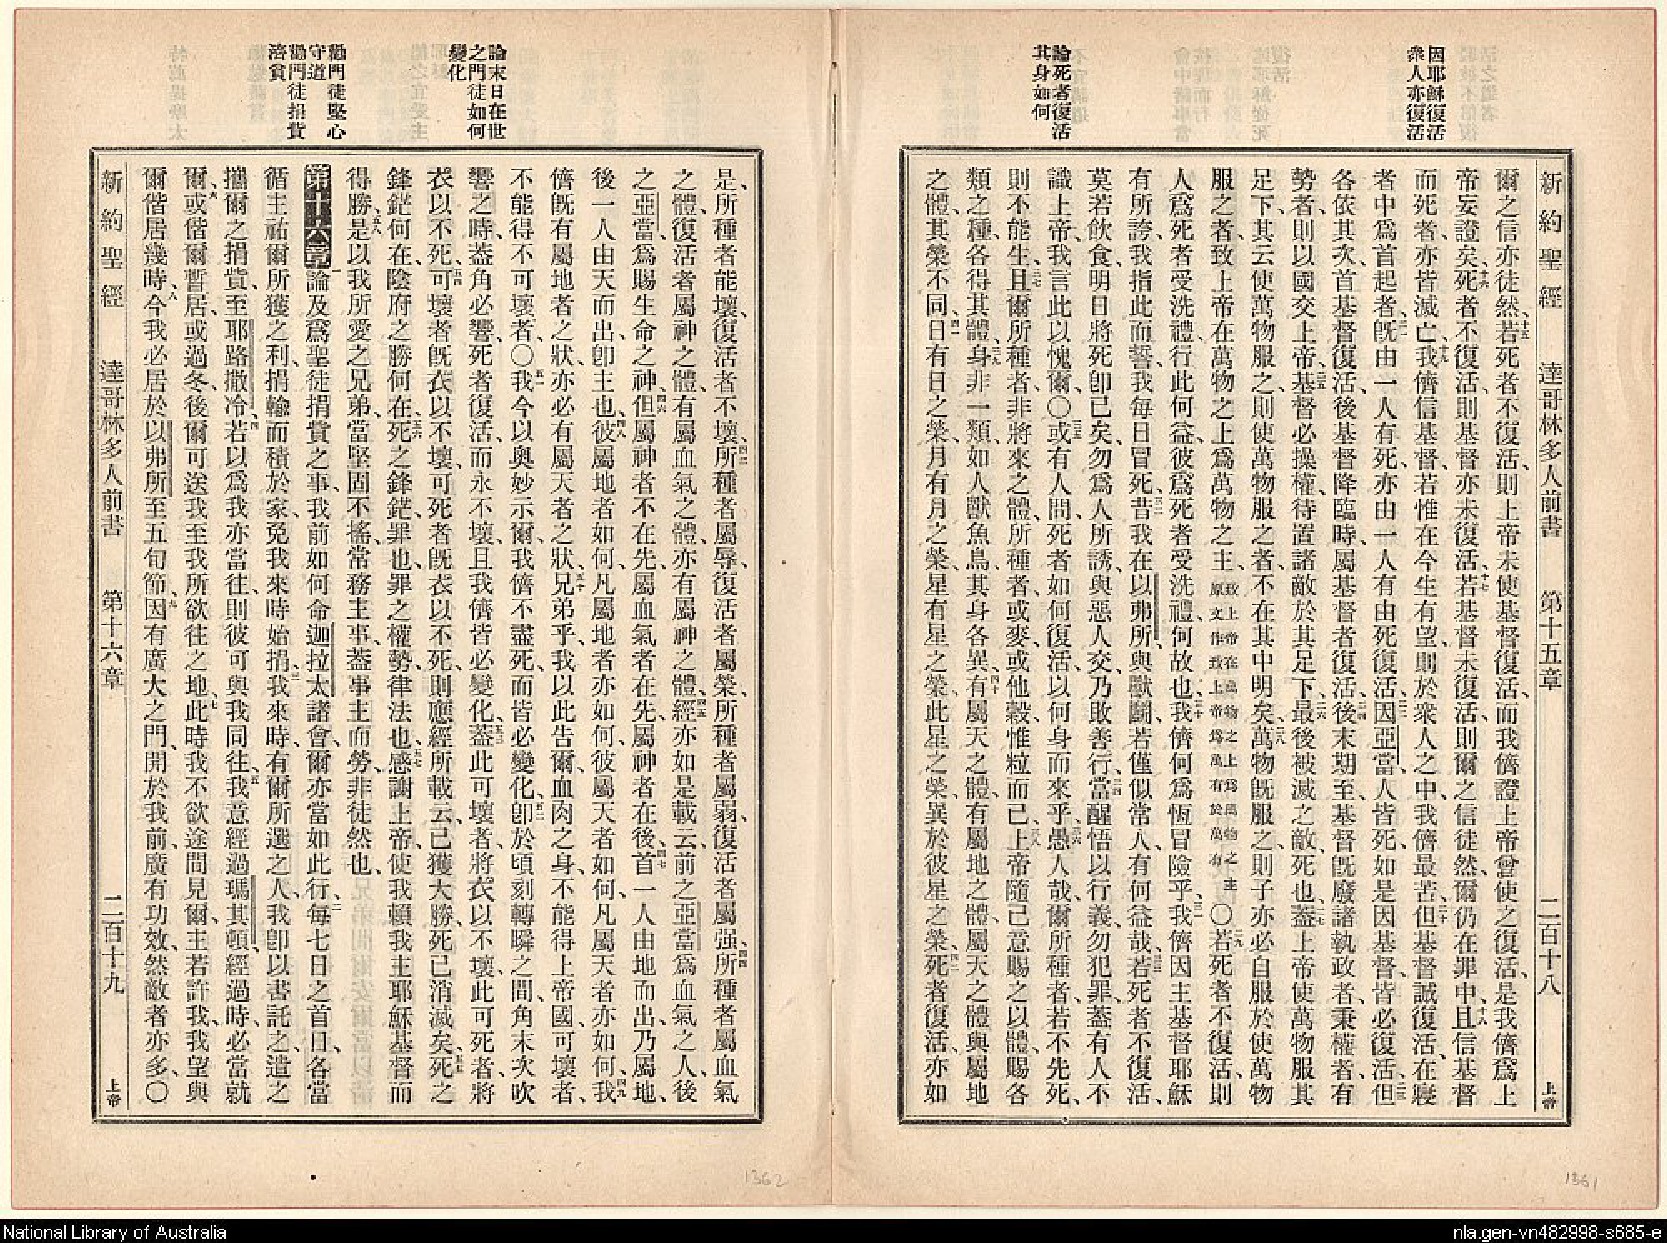 因耶穌復活
衆人亦復活
論死者復活
其身如何
新約聖經 達哥林多人前書 第十五章 二百十八 上帝
爾之信亦徒然、十五若死者不復活、則上帝未使基督復活、而我儕證上帝曾使之復活、是我儕爲上
帝妄證矣、十六死者不復活、則基督亦未復活、十七若基督未復活、則爾之信徒然、爾仍在罪中、十八且信基督
而死者、亦皆滅亡、十九我儕信基督、若惟在今生有望、則於衆人之中、我儕最苦、二十但基督誠復活、在寢
者中爲首起者、二一旣由一人有死、亦由一人有由死復活、二二因亞當人皆死、如是因基督、皆必復活、二三但
各依其次、首基督復活、後基督降臨時、屬基督者復活、二四後末期至、基督旣廢諸執政者、秉權者、有
勢者、則以國交上帝、二五基督必操權、待置諸敵於其足下、二六最後被滅之敵、死也、二七蓋上帝使萬物服其
足下、其云使萬物服之、則使萬物服之者、不在其中明矣、二八萬物旣服之、則子亦必自服於使萬物
服之者、致上帝在萬物之上、爲萬物之主、致上帝在萬物之上爲萬物之主原文作致上帝爲萬有於萬有○二九若死者不復活、則
人爲死者受洗禮、行此何益、彼爲死者受洗禮、何故也、三十我儕何爲恆冒險乎、三一我儕因主基督耶穌
有所誇、我指此而誓、我每日冒死、三二昔我在以弗所、與獸鬬、若僅似常人、有何益哉、若死者不復活、
莫若飲食、明日將死卽已矣、三三勿爲人所誘、與惡人交、乃敗善行、三四當醒悟以行義、勿犯罪、蓋有人不
識上帝、我言此以愧爾、○三五或有人問死者如何復活、以何身而來乎、三六愚人哉、爾所種者、若不先死、
則不能生、三七且爾所種者、非將來之體、所種者、或麥或他穀、惟粒而已、三八上帝隨己意賜之以體、賜各
類之種、各得其體、三九身非一類、如人獸魚鳥、其身各異、四十有屬天之體、有屬地之體、屬天之體、與屬地
之體、其榮不同、四一日有日之榮、月有月之榮、星有星之榮、此星之榮、異於彼星之榮、四二死者復活亦如
論末日在世
之門徒如何
變化
勸門徒堅心
守道
勸門徒捐貲
濟貧
是、所種者能壞、復活者不壞、四三所種者屬辱、復活者屬榮、所種者屬弱、復活者屬强、四四所種者屬血氣
之體、復活者屬神之體、有屬血氣之體、亦有屬神之體、四五經亦如是載云、前之亞當、爲血氣之人、後
之亞當、爲賜生命之神、四六但屬神者不在先、屬血氣者在先、屬神者在後、四七首一人由地而出、乃屬地、
後一人由天而出、卽主也、四八彼屬地者如何、凡屬地者亦如何、彼屬天者如何、凡屬天者亦如何、四九我
儕旣有屬地者之狀、亦必有屬天者之狀、五十兄弟乎、我以此告爾、血肉之身、不能得上帝國、可壞者、
不能得不可壞者、○五一我今以奧妙示爾、我儕不盡死、而皆必變化、五二卽於頃刻轉瞬之間、角末次吹
響之時、蓋角必響、死者復活、而永不壞、且我儕皆必變化、五三蓋此可壞者、將衣以不壞、此可死者、將
衣以不死、五四可壞者旣衣以不壞、可死者旣衣以不死、則應經所載云、已獲大勝、死已消滅矣、五五死之
鋒鋩何在、陰府之勝何在、五六死之鋒鋩、罪也、罪之權勢、律法也、五七感謝上帝、使我賴我主耶穌基督而
得勝、五八是以我所愛之兄弟、當堅固不搖、常務主事、蓋事主而勞、非徒然也、
第十六章 一論及爲聖徒捐貲之事、我前如何命迦拉太諸會、爾亦當如此行、二每七日之首日、各當
循主祐爾所獲之利、捐輸而積於家、免我來時始捐、三我來時、有爾所選之人、我卽以書託之、遣之
攜爾之捐貲至耶路撒冷、四若以爲我亦當往、則彼可與我同往、五我意經過瑪其頓、經過時、必當就
爾、六或偕爾暫居、或過冬、後爾可送我至我所欲往之地、七此時我不欲途間見爾、主若許我、我望與
爾偕居幾時、八今我必居於以弗所、至五旬節、九因有廣大之門、開於我前、廣有功效、然敵者亦多、○
新約聖經 達哥林多人前書 第十六章 二百十九 上帝
1362
1361
National Library of Australia
nla.gen-vn482998-s685-e